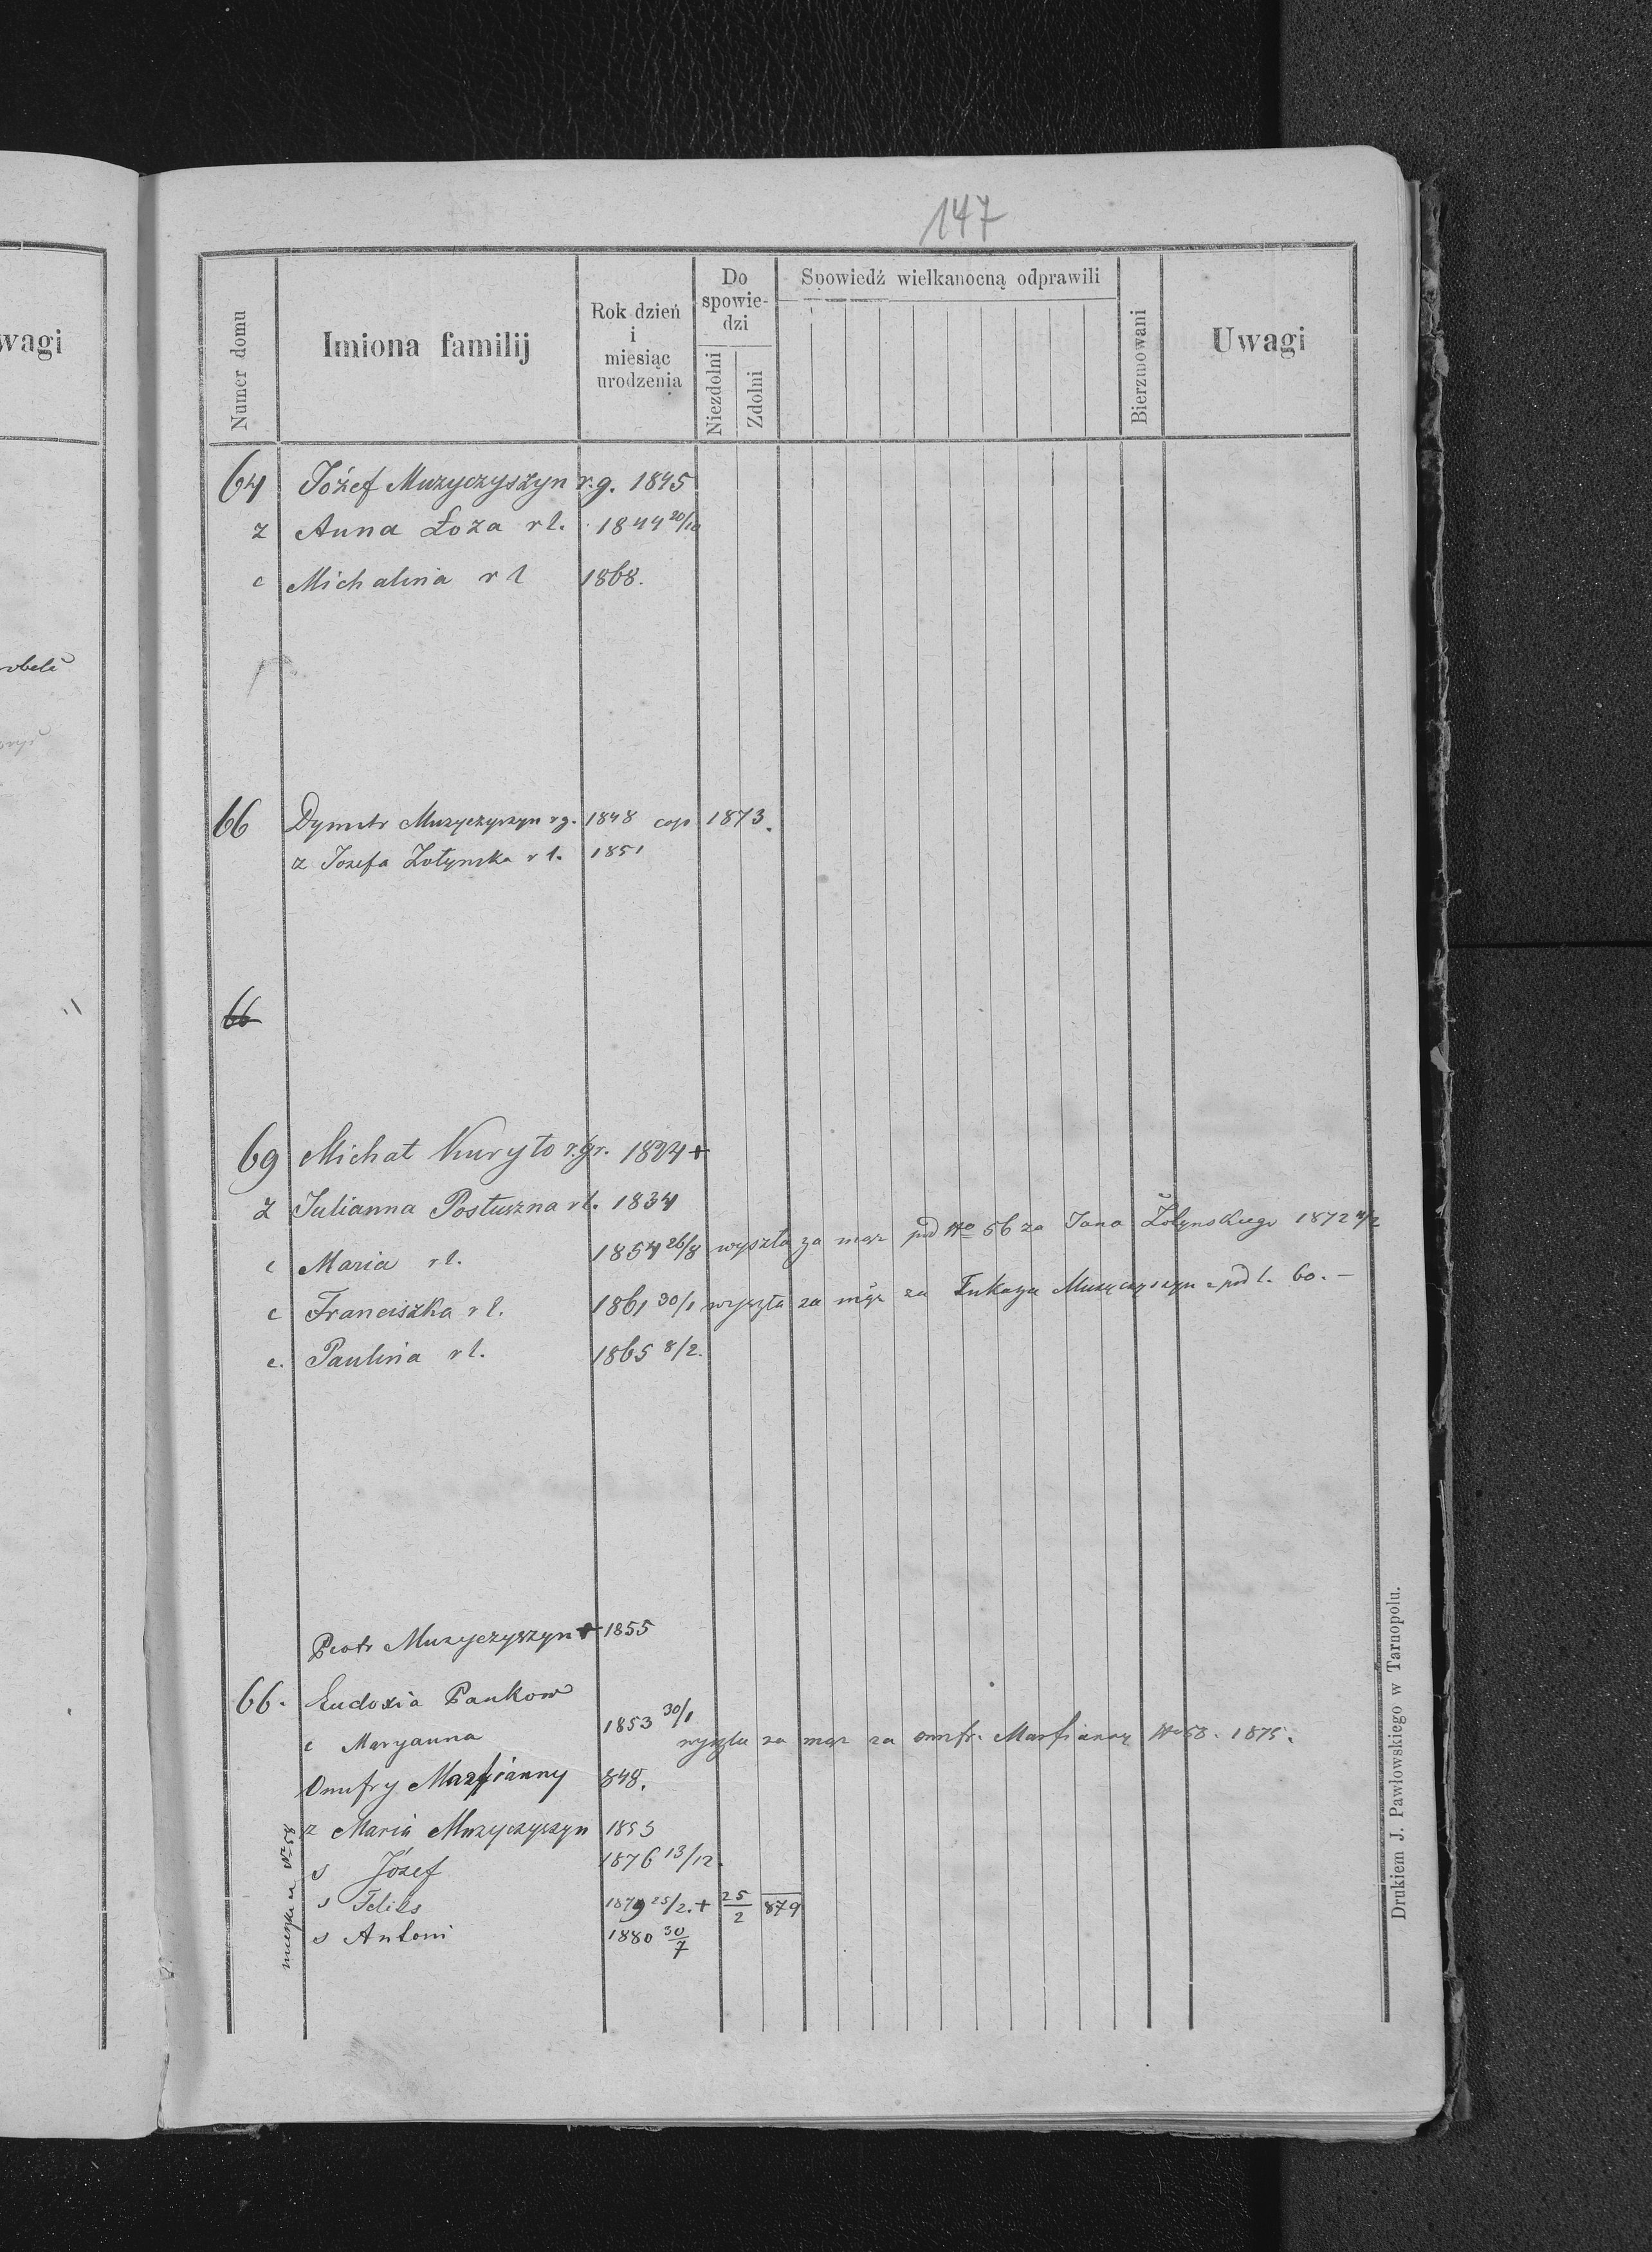 147
wagi
obeli
Numer domu
Imiona familij
Rok dzień
i
miesiąc
urodzenia
Do
spowie-
dzi
Niezdolni
Zdolni
Spowiedź wielkanocną odprawili
Bierzmowani
Uwagi
64 Józef Muzyczyszyn r.g. 1845
z Anna Łoza rl. 1844 20/10
c Michalina rl 1868.
66 Dymitr Muzyczyszyn rg. 1848 cop 1873.
z Jozefa Zołynska rl. 1851
66
69 Michał Kuryło r.gr. 1824 +
z Julianna Postuszna rl. 1834
c Maria rl. 1854 26/8 wyszła za mąz pod No 56 za Jana Żołynskiego 1872
c Franciszka rl. 1861 30/1 wyszła za mąż za Łukasza Muzyczyszyn pod l. 60. -
c. Paulina rl. 1865 8/2.
Piotr Muzyczyszyn + 1855
66. Eudoxia Pankow
c Maryanna 1853 30/1 wyszla za mąz za Onufr. Marfianny No 58. 1875.
Onufry Marfianny 848.
z Maria Muzyczyszyn 1853
s Józef 1876 13/12.
s Feliks 1879 25/2. + 25/2 879
s Antoni 1880 30/7
No 58
Drukiem J. Pawłowskiego w Tarnopolu.